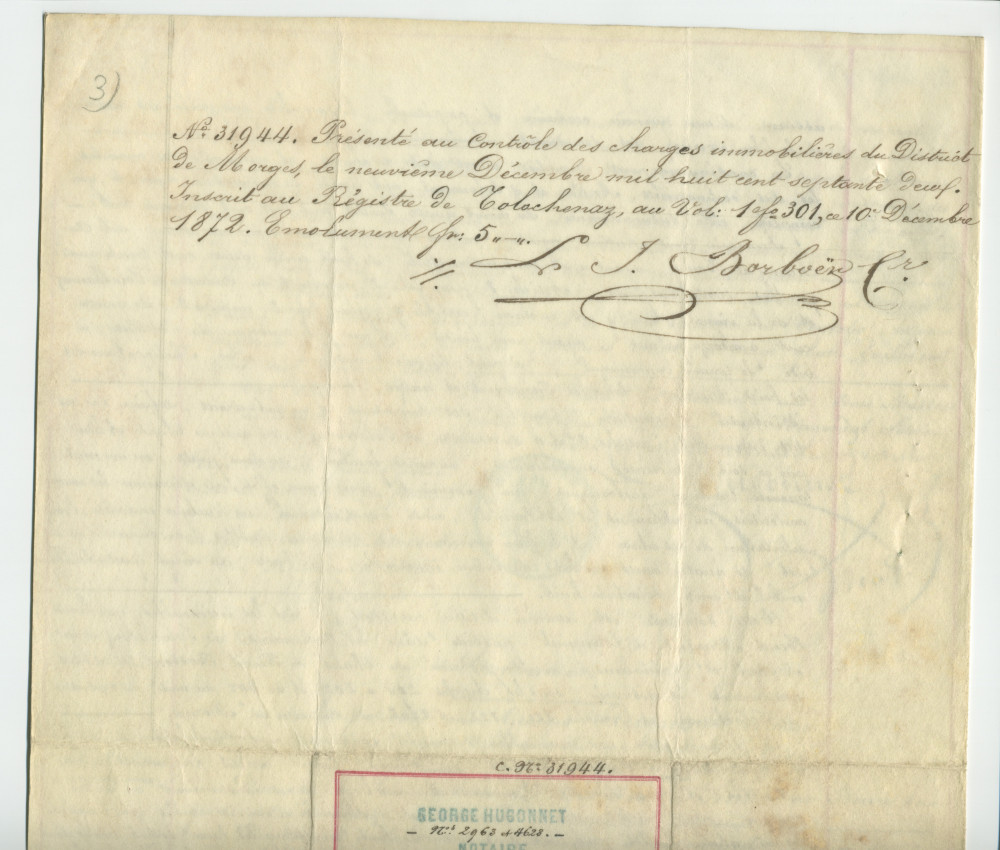 3)
No. 31944. Présenté au Contrôle des charges immobilières du District
de Morges, le neuvième Décembre mil huit cent septante deux.
Inscrit au Régistre de Tolochenaz, au Vol: 1 fo 301, ce 10e Décembre
1872. Emolument fr: 5 „—„.
J. Borboën Cr.
C. No. 31944.
GEORGE HUGONNET
— Nos. 2963 et 4628. —
NOTAIRE